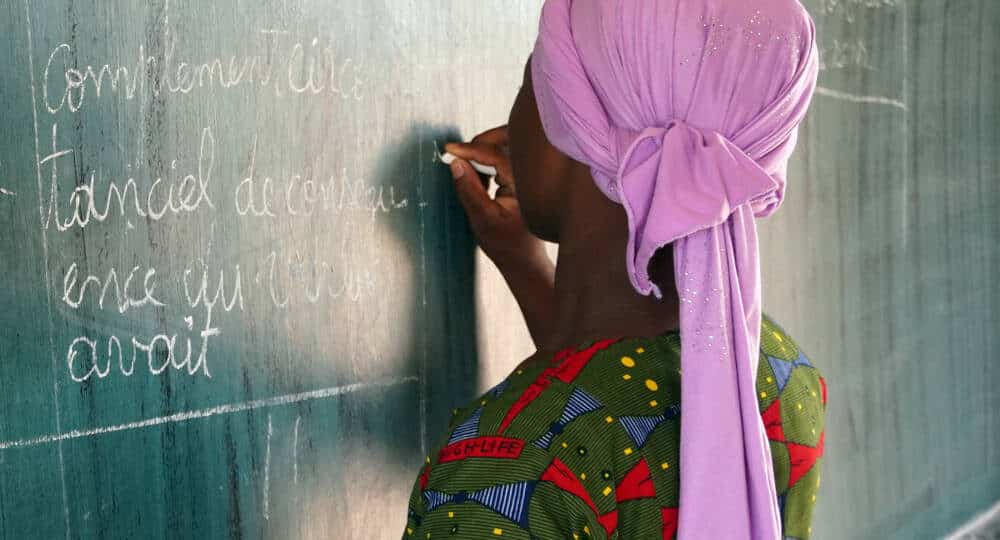 Complement circ
tanciel de consequ-
ence qui
avait
HIGH-LIFE